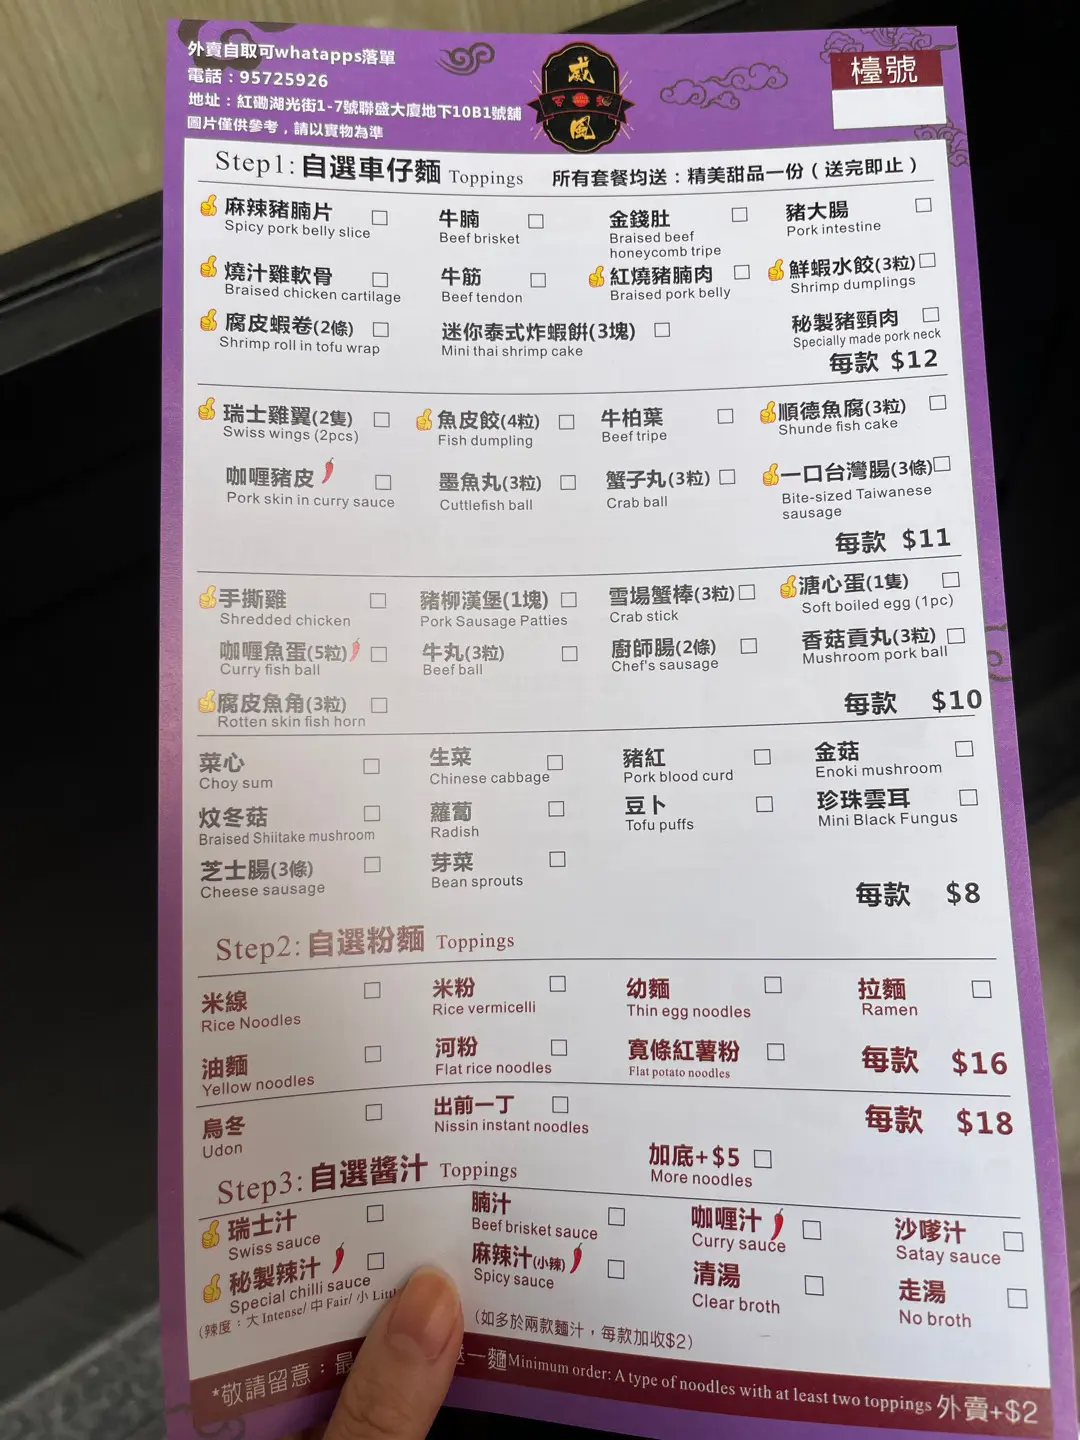 外賣自取可whatapps落單
電話：95725926
地址：紅磡湖光街1-7號聯盛大廈地下10B1號舖
圖片僅供參考，請以實物為準
威
風
檯號
Step1:自選車仔麵 Toppings 所有套餐均送：精美甜品一份（送完即止）
麻辣豬腩片 牛腩 金錢肚 豬大腸
Spicy pork belly slice Beef brisket Braised beef honeycomb tripe Pork intestine
燒汁雞軟骨 牛筋 紅燒豬腩肉 鮮蝦水餃(3粒)
Braised chicken cartilage Beef tendon Braised pork belly Shrimp dumplings
腐皮蝦卷(2條) 迷你泰式炸蝦餅(3塊) 秘製豬頸肉
Shrimp roll in tofu wrap Mini thai shrimp cake Specially made pork neck
每款 $12
瑞士雞翼(2隻) 魚皮餃(4粒) 牛柏葉 順德魚腐(3粒)
Swiss wings (2pcs) Fish dumpling Beef tripe Shunde fish cake
咖喱豬皮 墨魚丸(3粒) 蟹子丸(3粒) 一口台灣腸(3條)
Pork skin in curry sauce Cuttlefish ball Crab ball Bite-sized Taiwanese sausage
每款 $11
手撕雞 豬柳漢堡(1塊) 雪場蟹棒(3粒) 溏心蛋(1隻)
Shredded chicken Pork Sausage Patties Crab stick Soft boiled egg (1pc)
咖喱魚蛋(5粒) 牛丸(3粒) 廚師腸(2條) 香菇貢丸(3粒)
Curry fish ball Beef ball Chef's sausage Mushroom pork ball
腐皮魚角(3粒)
Rotten skin fish horn
每款 $10
菜心 生菜 豬紅 金菇
Choy sum Chinese cabbage Pork blood curd Enoki mushroom
炆冬菇 蘿蔔 豆卜 珍珠雲耳
Braised Shiitake mushroom Radish Tofu puffs Mini Black Fungus
芝士腸(3條) 芽菜
Cheese sausage Bean sprouts
每款 $8
Step2:自選粉麵 Toppings
米線 米粉 幼麵 拉麵
Rice Noodles Rice vermicelli Thin egg noodles Ramen
油麵 河粉 寬條紅薯粉 每款 $16
Yellow noodles Flat rice noodles Flat potato noodles
烏冬 出前一丁 每款 $18
Udon Nissin instant noodles
加底+$5
More noodles
Step3:自選醬汁 Toppings
瑞士汁 腩汁 咖喱汁 沙嗲汁
Swiss sauce Beef brisket sauce Curry sauce Satay sauce
秘製辣汁 麻辣汁(小辣) 清湯 走湯
Special chilli sauce Spicy sauce Clear broth No broth
(辣度：大 Intense/ 中 Fair/ 小
(如多於兩款麵汁，每款加收$2)
*敬請留意：最 一麵 Minimum order: A type of noodles with at least two toppings 外賣+$2